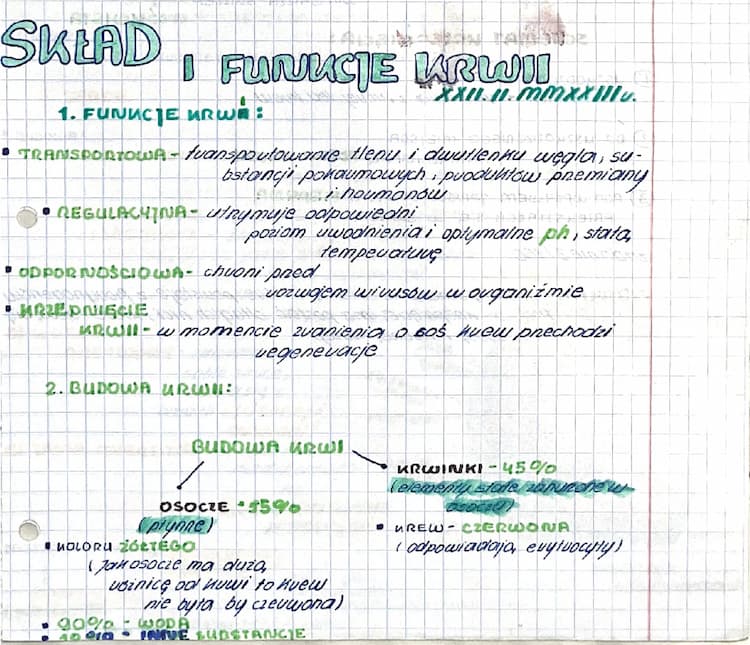 SKŁAD I FUNKCJE KRWII
XXII.II.MMXXIIIr.
1. FUNKCJE KRWI:
• TRANSPORTOWA - transportowanie tlenu i dwutlenku węgla, su-
bstancji pokarmowych, produktów przemiany
i hormonów
• REGULACYJNA - utrzymuje odpowiedni
poziom uwodnienia i optymalne ph, stałą
temperaturę
• ODPORNOŚCIOWA - chroni przed
rozwojem wirusów w organiźmie
• KRZEPNIĘCIE
KRWII - w momencie zranienia o coś krew przechodzi
regeneracje
2. BUDOWA KRWII:
BUDOWA KRWI
KRWINKI - 45%
(elementy stałe zanurzone w
osoczu)
OSOCZE - 55%
(płynne)
• KREW - CZERWONA
(odpowiadają erytrocyty)
• KOLORU ŻÓŁTEGO
(jak osocze ma dużą
różnicę od krwi to krew
nie była by czerwona)
• 90% - WODA
• 10% - INNE SUBSTANCJE